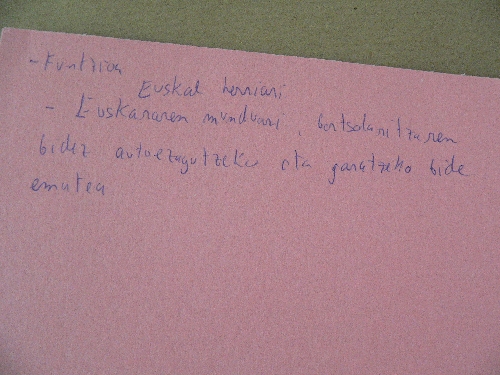 - Funtzioa
Euskal herriari
- Euskararen munduari, bertsolaritzaren
bidez autoezagutzeko eta garatzeko bide
ematea